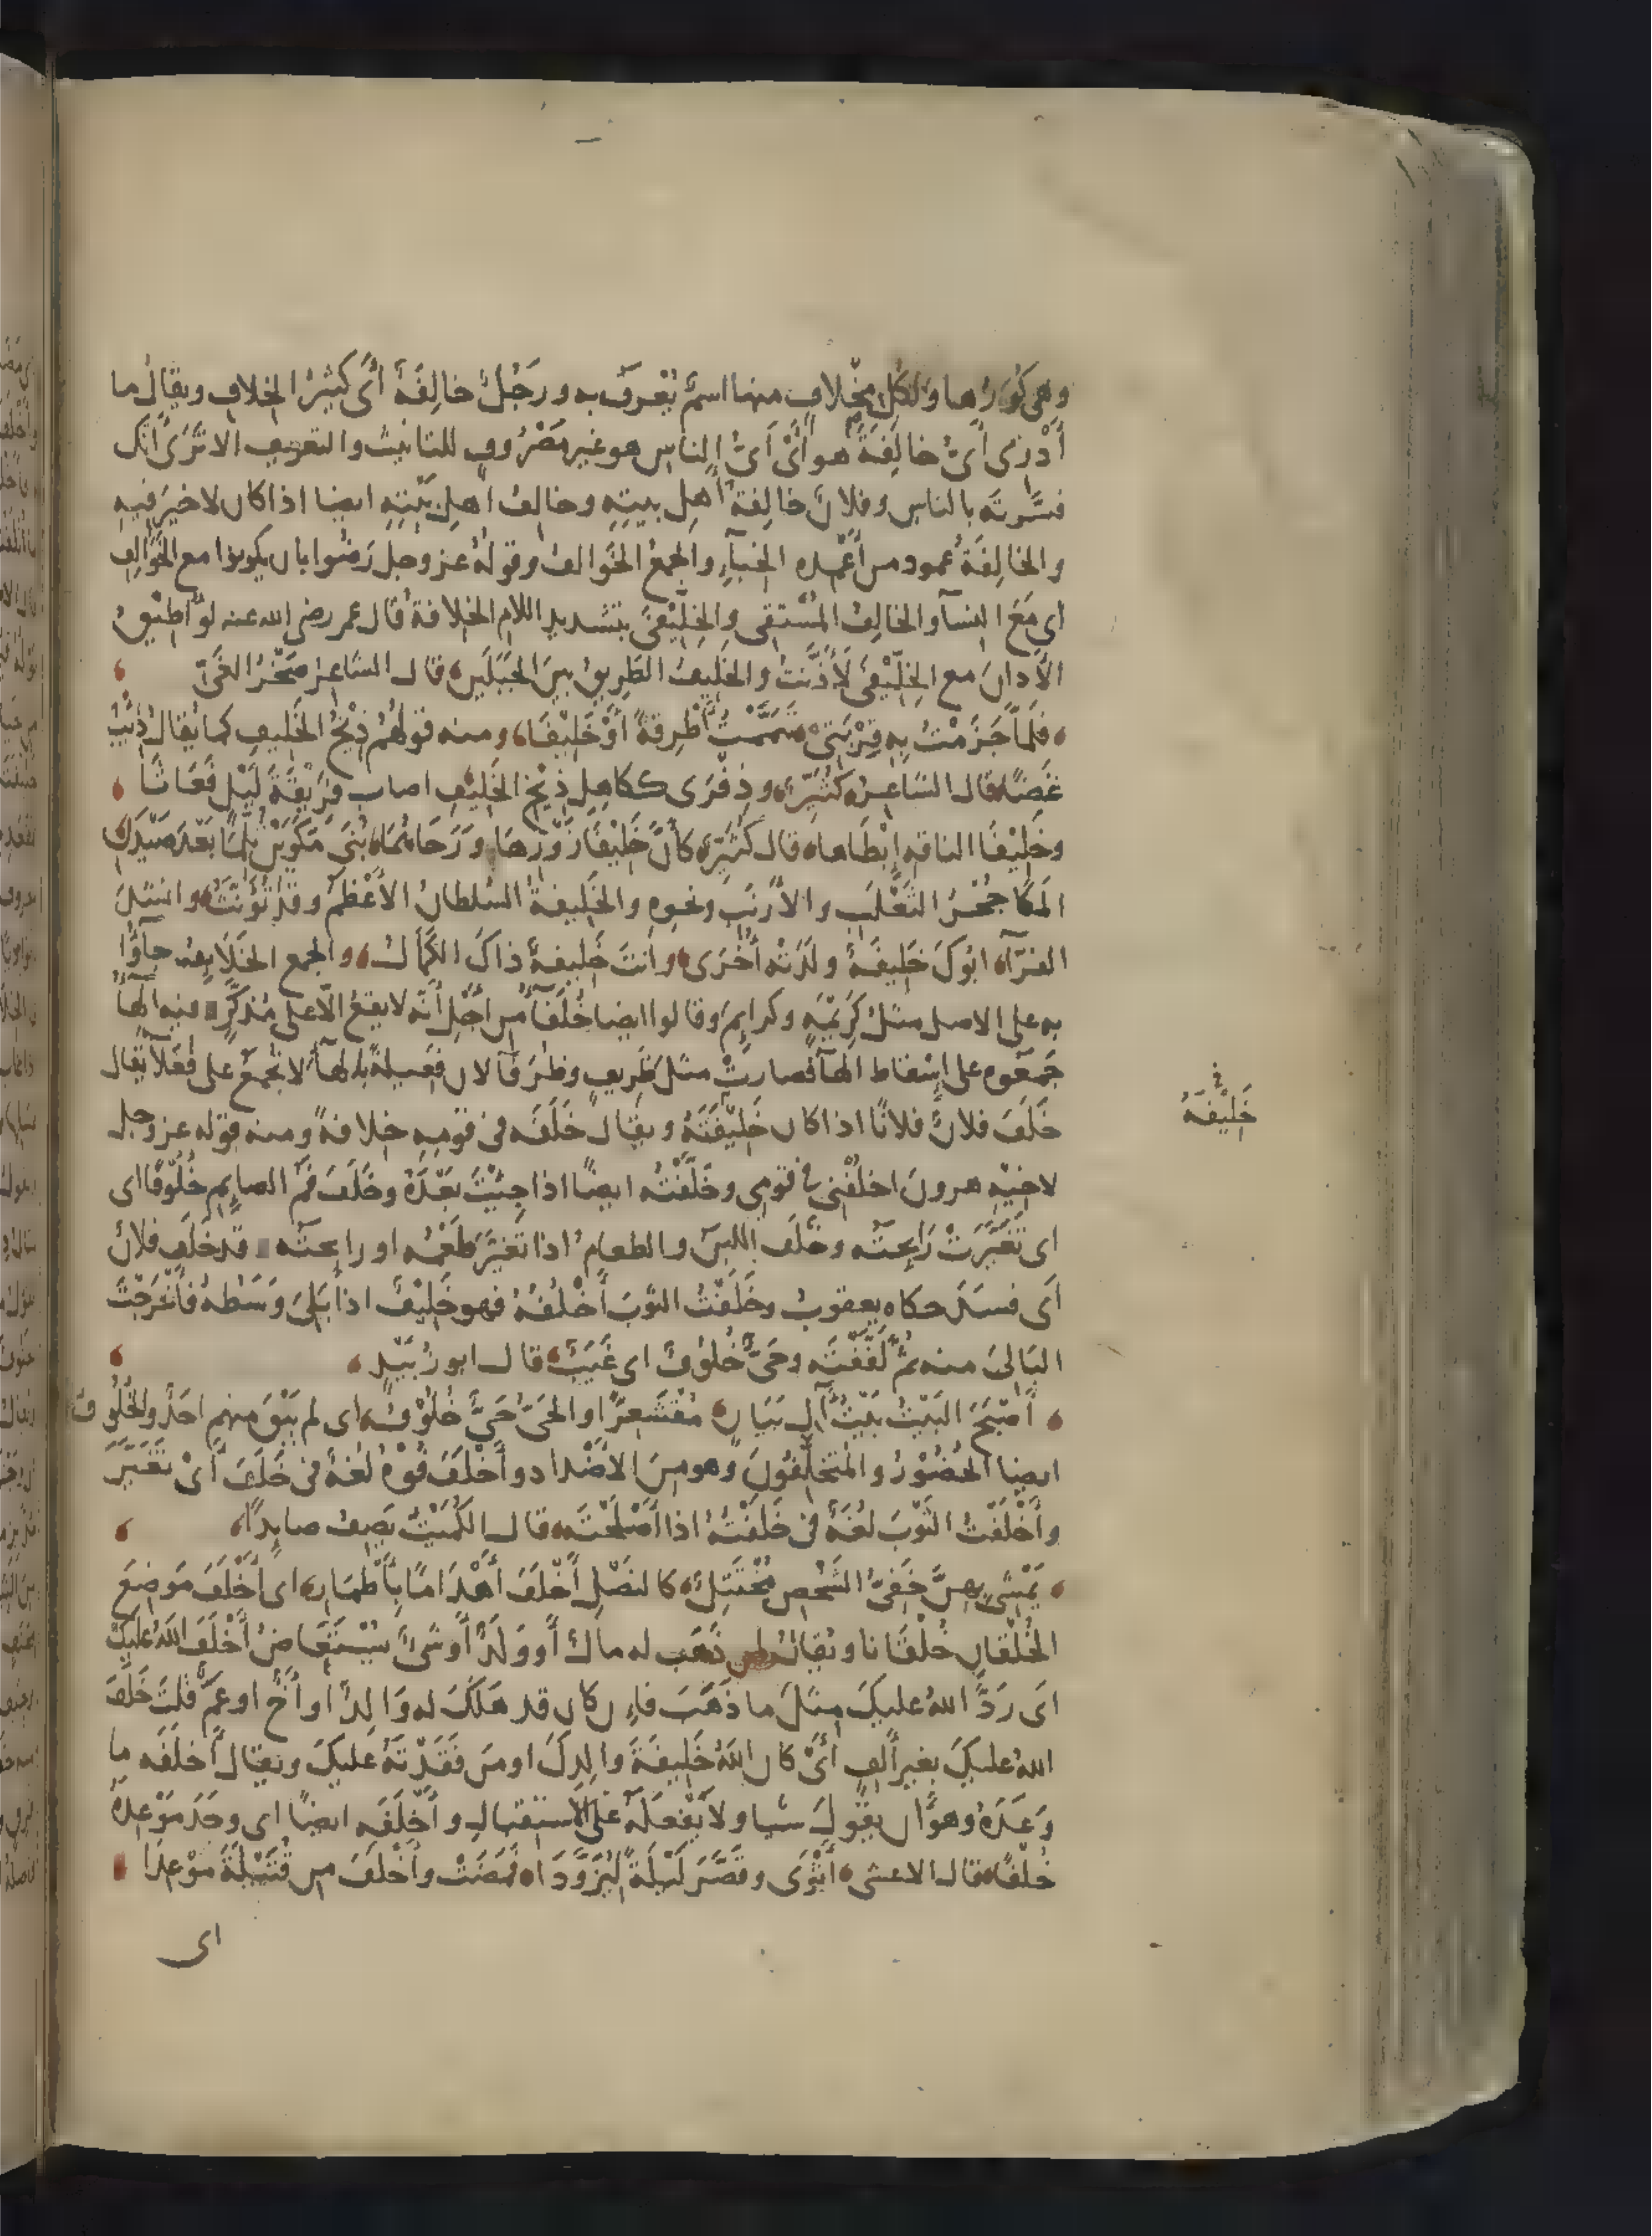 وهي كُوَرُها ولكل مِخْلافٍ منها اسمٌ يُعْرَفُ به ورَجُلٌ خالِفَةٌ أَىْ كَثيرُ الخِلافِ ويقالُ ما
أَدْرِى أَىُّ خالِفَةَ هو أَىْ أَىُّ الناسِ هو غيرَ مَصْرُوفٍ للتانيثِ والتعريفِ الا تَرَى أنّك
فسَّرتَه بالناسِ وفلانٌ خالِفَةُ أهلِ بيتِهِ وخالِفُ أهلِ بَيْتِهِ ايضا اذا كان لا خيرَ فيهِ
والخالِفَةُ عمود من أَعْمِدِهِ الخِبآءِ والجمعُ الخَوالفُ وقولُهُ عز وجل رَضُوا بان يكونوا مع الخَوالِفِ
اى مَعَ النسآ والخالِفُ المُسْتَقِى والخِلِّيْفَى بتشديد اللام الخلافة قال عمر رضى الله عنه لَوْ أُطِيْقُ
الأَذانَ مع الخِلِّيْفَى لَأَذَّنْتُ والخَلِيفُ الطَرِيقُ بينَ الجَبَلَينِ قال الشاعِرُ صَخْرُ الغَىِّ
فَلَمّا جَزَمْتُ بِهِ قِرْبَتِىْ تَيَمَّمْتُ أَطْرِقَةً أَوْ خَلِيْفَا ومنه قولُهُم ذِيْخُ الخَلِيفِ كما يُقالُ ذِئْبُ
غَضًا قال الشاعِرُ كُثَيِّر وذِفْرَى ككاهِلِ ذِيْخِ الخَلِيْفِ اصاب فَرِيْقَةَ لَيْلٍ فَعَاثَا
وخَلِيْفَا الناقهِ إِبْطَاها قال كُثَيِّر كأَنَّ خَلِيْفَىْ زَوْرِهَا ورَحَاهُمَا بُنَى مَكَوَيْنِ ثُلِّمَا بَعْدَ صَيْدَنِ
المَكَا جُحْرُ الثَعْلَبِ والأَرْنَبِ ونحوِهِ والخَلِيفةُ السُلطانُ الأَعْظَمُ وقد يُؤَنَّثُ وانشدَ
الفرّآ ابُوكَ خَلِيفَةٌ ولَدَتْهُ أُخْرَى وانتَ خَلِيفةٌ ذاكَ الكَمَالُ والجمع الخَلَايِفُ جاؤُا
به على الاصل مثلُ كَرِيْمَهٍ وكرايِمَ وقالوا ايضا خُلَفَآءُ من أَجْلِ أنّه لا يقعُ الّا على مُذَكَّرٍ وفيه الهآءُ
جَمَعُوه على إِسْقاطِ الهآ فصارَتْ مثلَ ظَرِيفٍ وظُرَفَآ لان فَعِيلَةً بالهآءِ لا تُجْمَعُ على فُعَلآ يُقال
خَلَفَ فلانٌ فلانًا اذا كان خَلِيْفَتَهُ ويقال خَلَفَه فى قومِهِ خِلافةً ومنه قوله عز وجل
لاخيْهِ هرونَ اخلُفْنِى فى قومِى وخَلَفْتُه ايضًا اذا جِئْتَ بَعْدَهُ وخَلَفَ فَمُ الصايِمِ خُلُوفًا اى
اى تَغَيَّرَتْ رَايِحَتُه وخَلَفَ اللبنُ والطعامُ اذا تَغيَّرَ طَعْمُه او رايحتُه وقد خَلَفَ فلانٌ
أَى فسَدَ حكاه يعقوبُ وخَلَفْتُ الثوبَ أَخْلُفُهُ فهو خَلِيْفٌ اذا بَلِىَ وَسَطُهُ فأَخْرَجْتَ
البَالِىَ منه ثُمَّ لَفَقْتَه وحَىٌّ خُلُوْفٌ اى غَيَبٌ قال ابو زُبَيْدٍ
أَصْبَحَ البَيْتُ بَيْتُ آلِ بَيَانٍ مُقْشَعِرًّا والحَىُّ حَىٌّ خُلُوْفُ اى لم يَبْقَ منهم احَدٌ والخُلُوفُ
ايضا الحُضُوْرُ والمُتَخَلِّفُونَ وهو مِنَ الأَضْدادِ وأَخْلَفَ فُوْهُ لُغةٌ فى خَلَفَ أَىْ تَغَيَّرَ
وأَخْلَفْتُ الثَوْبَ لغَةٌ فى خَلَفْتُهُ اذا أَصْلَحْتَه قال الكُمَيْتُ يَصِفُ صايِدًا
يَمْشِى بِهِنَّ خَفِىُّ الشَخْصِ مُخْتَتِلٌ كالنَصْلِ أَخْلَفَ أَهْدَامًا بِأَطْمَارِ اى أَخْلَفَ مَوضِعَ
الخُلْقانِ خُلْقَانا ويُقالُ لمن ذَهَب له مالٌ أو وَلَدٌ أو شَىٌ يُسْتَعَاضُ أَخْلَفَ اللّهُ عليكَ
اى رَدَّ اللهُ عليكَ مِثلَ ما ذَهَبَ فإن كان قد هَلَكَ له وَالِدٌ او أَخٌ او عَمٌّ قلتَ خَلَفَ
اللهُ عليكَ بغيرِ أَلِفٍ أَىْ كان اللهُ خَلِيفةَ والِدِكَ او مَن فَقَدْتَهُ عَليكَ ويقال أَخلَفَه ما
وَعَدَهُ وهو أن يقُولَ شيا ولا يَفْعَلَهُ على الاستقبالِ وأَخْلَفَه ايضًا اى وجَدَ مَوْعِدَهُ
خُلْفًا قال الاعشى أَثْوَى وقَصَّرَ لَيْلَةً لِيُزَوَّدَا فمَضَتْ وأَخْلَفَ مِن قُتَيْلَةَ مَوْعِدَا
اى
خَلِيْفَهُ